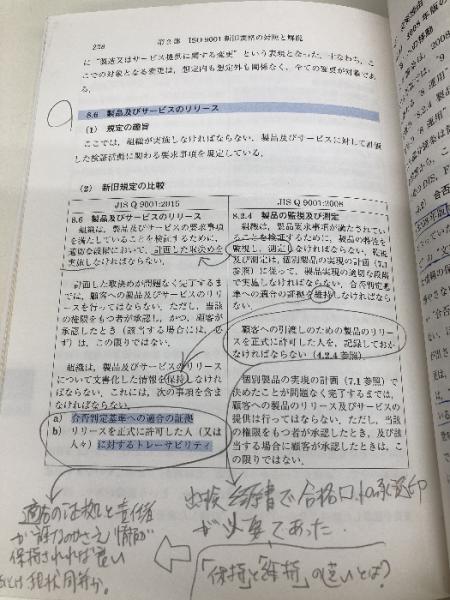 258　第2部　ISO 9001 新旧規格の対照と解説
に“製造又はサービス提供に関する変更”という表現となった．すなわち，こ
こでの対象となる変更は，想定内も想定外も関係なく，全ての変更が対象であ
る．
8.6　製品及びサービスのリリース
(1)　規定の趣旨
ここでは，組織が実施しなければならない，製品及びサービスに対して計画
した検証活動に関わる要求事項を規定している．
(2)　新旧規定の比較
JIS Q 9001:2015
8.6　製品及びサービスのリリース
組織は，製品及びサービスの要求事項
を満たしていることを検証するために，
適切な段階において，計画した取決めを
実施しなければならない．
計画した取決めが問題なく完了するま
では，顧客への製品及びサービスのリリ
ースを行ってはならない．ただし，当該
の権限をもつ者が承認し，かつ，顧客が
承認したとき（該当する場合には，必
ず）は，この限りではない．
組織は，製品及びサービスのリリース
について文書化した情報を保持しなけれ
ばならない．これには，次の事項を含ま
なければならない．
a)　合否判定基準への適合の証拠
b)　リリースを正式に許可した人（又は
人々）に対するトレーサビリティ
JIS Q 9001:2008
8.2.4　製品の監視及び測定
組織は，製品要求事項が満たされてい
ることを検証するために，製品の特性を
監視し，測定しなければならない．監視
及び測定は，個別製品の実現の計画（7.1
参照）に従って，製品実現の適切な段階
で実施しなければならない．合否判定基
準への適合の証拠を維持しなければなら
ない．
顧客への引渡しのための製品のリリー
スを正式に許可した人を，記録しておか
なければならない（4.2.4 参照）．
個別製品の実現の計画（7.1 参照）で
決めたことが問題なく完了するまでは，
顧客への製品のリリース及びサービスの
提供は行ってはならない．ただし，当該
の権限をもつ者が承認したとき，及び該
当する場合に顧客が承認したときは，こ
の限りではない．
適合の証拠と責任者
が誰なのかさえ情報が
保持されれば良い
出検
合格
承認印
が必要であった．
「保持」と「維持」の違いとは？